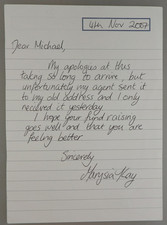 4th Nov 2007
Dear Michael,
My apologies at this
taking so long to arrive, but
unfortunately my agent sent it
to my old address and I only
received it yesterday.
I hope your fund raising
goes well and that you are
feeling better.
Sincerely
Kay